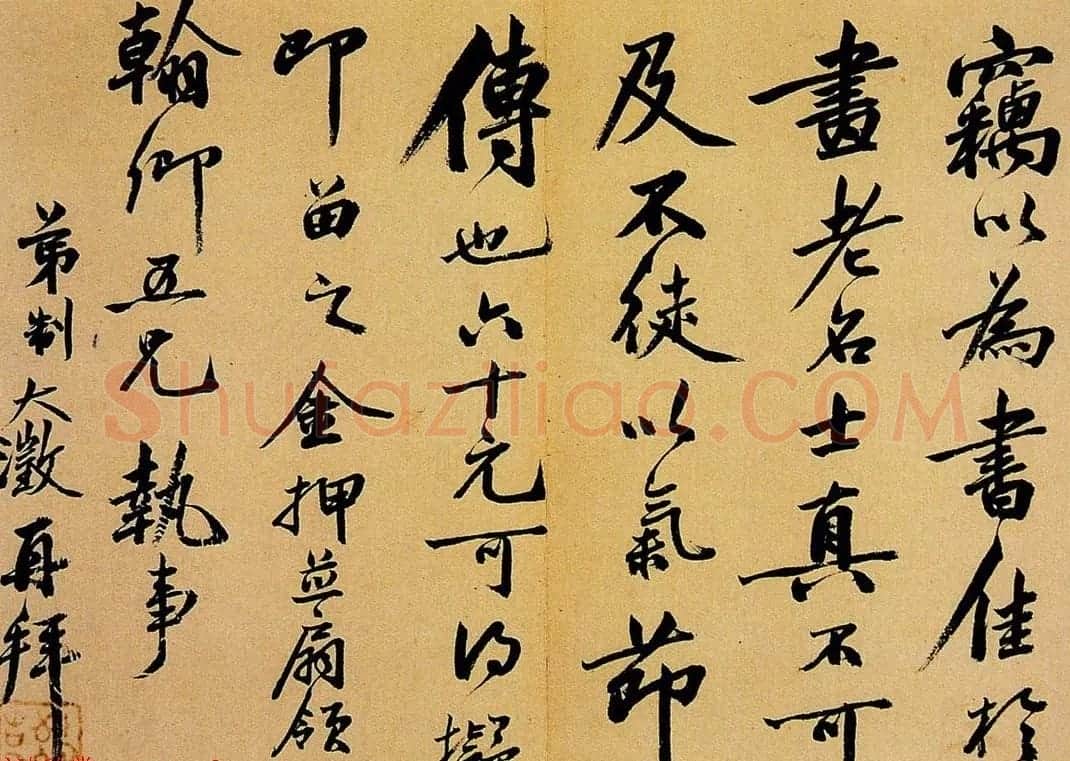 竊以為書佳於
畫老名士真不可
及不徒以氣節
傳也六十元可得擬
即留之金押並扇領
翰卿五兄執事
弟制大澂再拜
Shufaziliao.COM